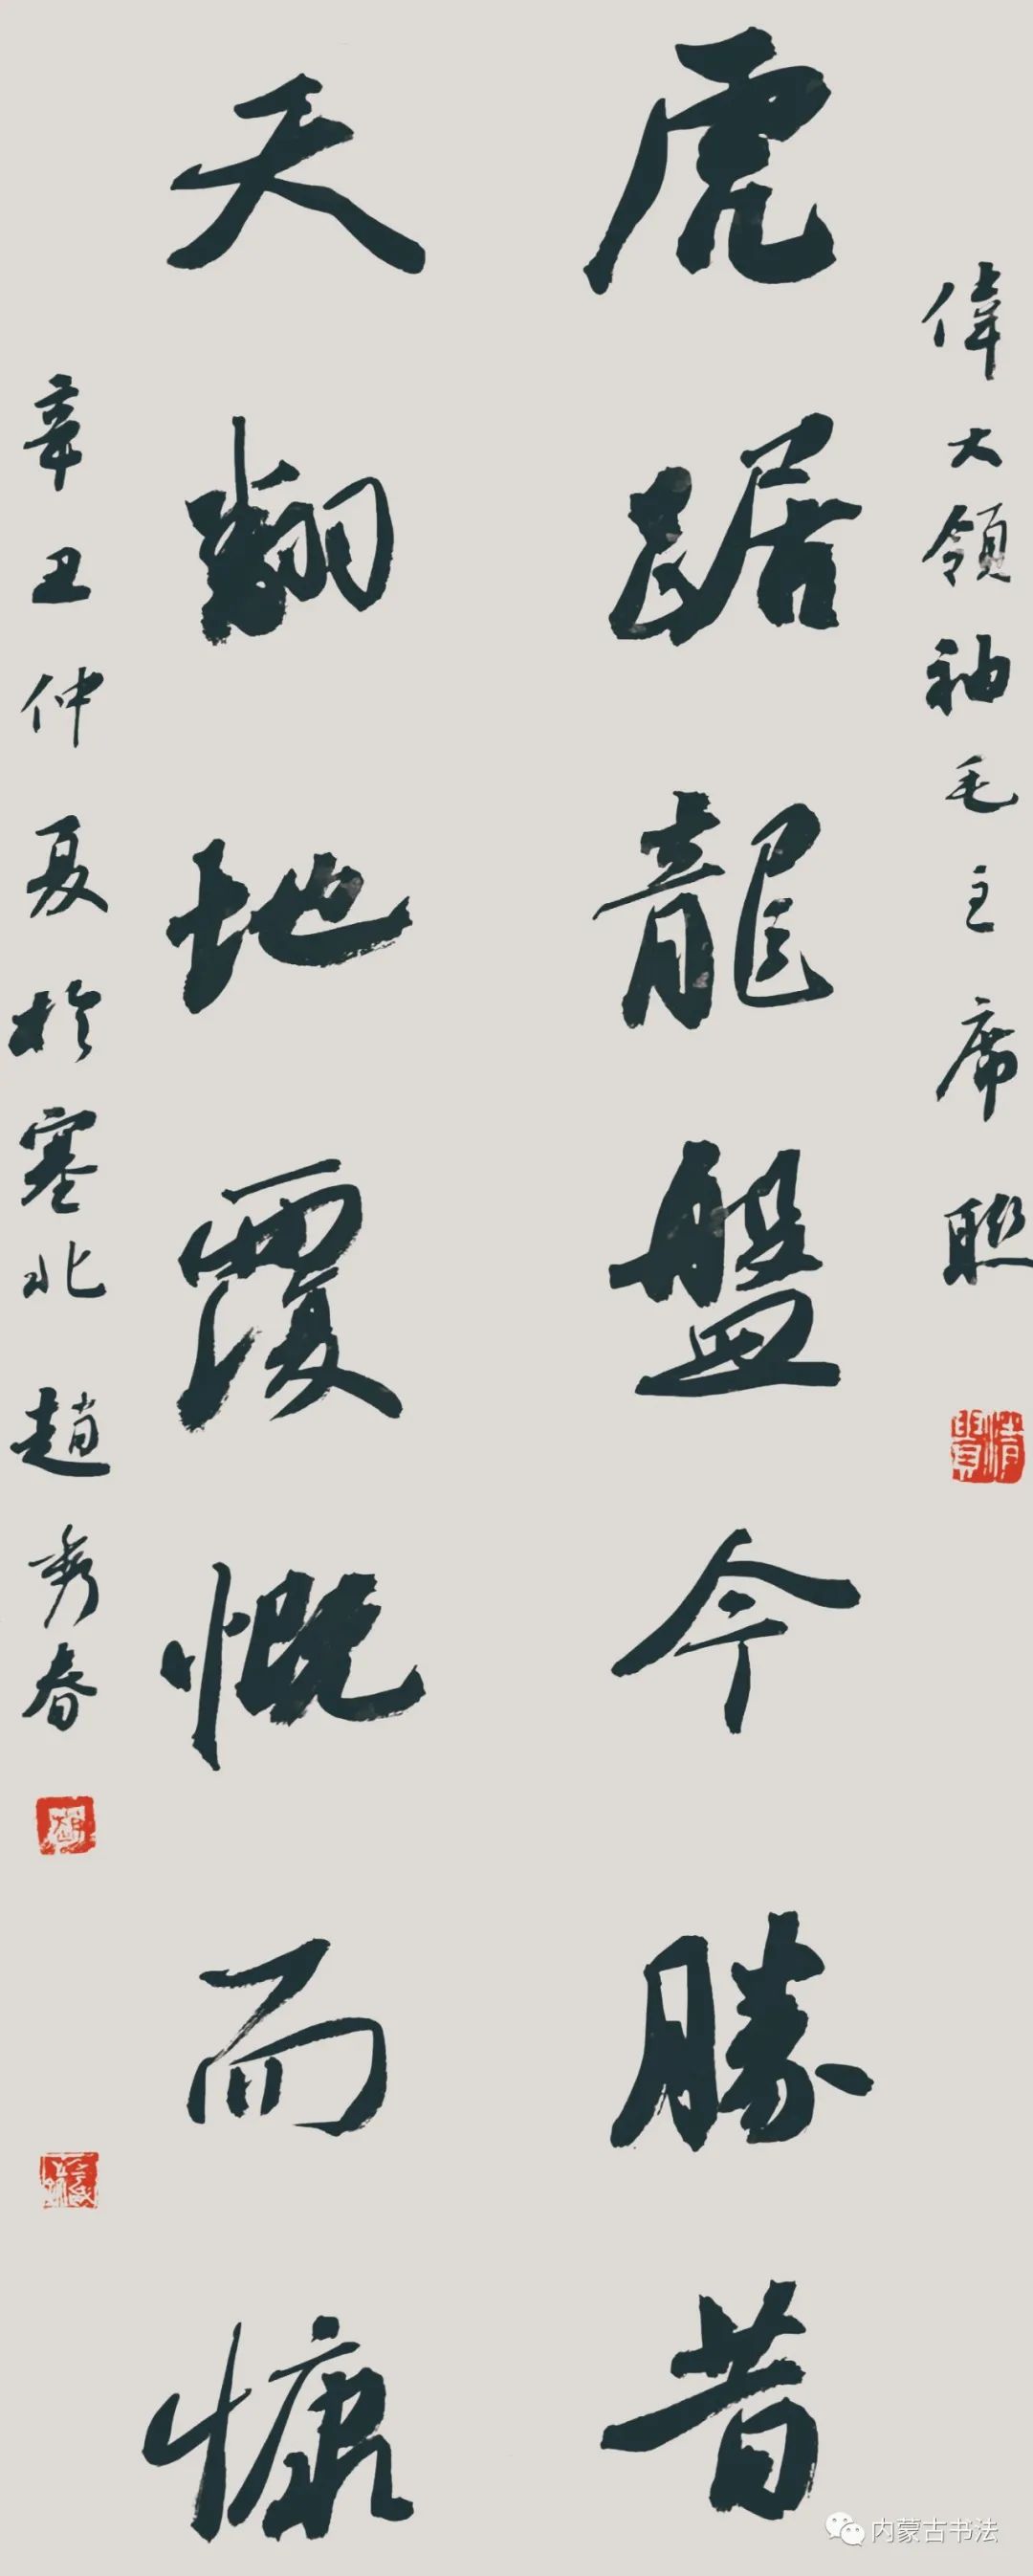 偉大領袖毛主席聯
虎踞龍盤今勝昔
天翻地覆慨而慷
辛丑仲夏於塞北趙秀春
内蒙古书法